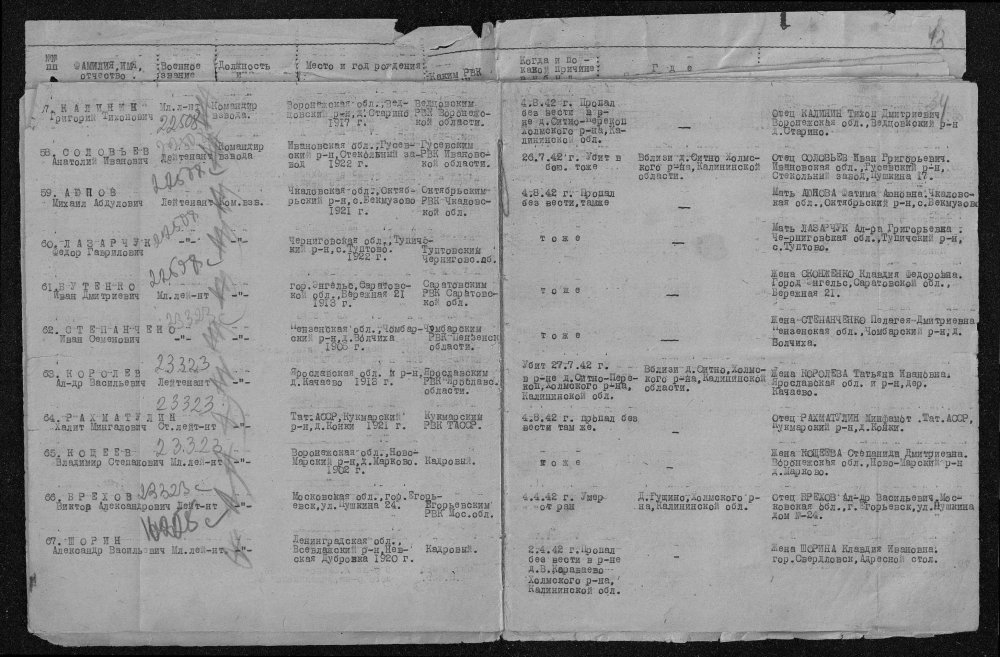 13
№№ пп
ФАМИЛИЯ, ИМЯ, отчество.
Военное звание
Должность и
Место и год рождения
Каким РВК
Когда и по какой причине
Где
24
57. КАЛИНИН Мл.л-нт Командир Воронежская обл., Вед- Ведцовским 4.8.42 г. Пропал Отец КАЛИНИН Тихон Дмитриевич
Григорий Тихонович взвода. цовский р-н, д.Старино РВК Воронеж- без вести в р-не Воронежская обл., Ведцовский р-н
1917 г. кой области. д.Ситно-Перекоп д.Старино.
22508 Холмского р-на, Ка-
лининской обл. —
58. СОЛОВЬЕВ Командир Ивановская обл., Гусев- Гусевским 26.7.42 г. Убит в Вблизи д.Ситно Холмс- Отец СОЛОВЬЕВ Иван Григорьевич.
Анатолий Иванович Лейтенант взвода ский р-н, Стекольный за- РВК Ивановс- бою. тоже кого р-на, Калининской Ивановская обл., Гусевский р-н,
вод 1922 г. кой области. области. Стекольный завод, Пушкина 17.
22508
59. АЮПОВ Чкаловская обл., Октяб- Октябрьским 4.8.42 г. Пропал Мать АЮПОВА Фатима Аюповна. Чкаловс-
Михаил Абдулович Лейтенант Ком.взв. рьский р-н, с.Бекмузово РВК Чкаловс- без вести, также — кая обл., Октябрьский р-н, с.Бекмузово
1921 г. кой обл.
22508
60. ЛАЗАРЧУК -"- -"- Черниговская обл., Тупич- тоже — Мать ЛАЗАРЧУК Ал-ра Григорьевна.
Федор Гаврилович кий р-н, с.Туптово. Туптовским Черниговская обл., Тупичский р-н,
1922 г. Черниговс.об. с.Туптово.
22508
61. БУТЕНКО гор.Энгельс, Саратовс- Саратовским тоже — Жена СКОНЖЕНКО Клавдия Федоровна.
Иван Дмитриевич Мл.лей-нт -"- кой обл., Бережная 21 РВК Саратовс- Город Энгельс, Саратовской обл.,
1913 г. кой обл. Бережная 21.
23323
62. СТЕПАНЧЕНО Пензенская обл., Чомбар- Чумбарским тоже — Жена СТЕПАНЧЕНКО Пелагея Дмитриевна
Иван Семенович -"- -"- ский р-н, д.Волчиха РВК Пензенс Пензенская обл., Чомбарский р-н, Д.
1905 г. области. Волчиха.
23323
63. КОРОЛЕВ Ярославская обл. и р-н, Ярославским Убит 27.7.42 г. Вблизи д.Ситно, Холмс- Жена КОРОЛЕВА Татьяна Ивановна.
Ал-др Васильевич Лейтенант -"- д.Качаево 1913 г. РВК Ярославс. в р-не д.Ситно-Пере- кого р-на, Калининской Ярославская обл. и р-н, дер.
области. коп, Холмского р-на, области. Качаево.
Калининской обл.
23323
64. РАХМАТУЛИН Тат.АССР, Кукмарский Кукмарским 4.8.42 г. пропал без Отец РАХМАТУЛИН Минфамот. Тат.АССР,
Халит Мингалович Ст.лейт-нт -"- р-н, д.Конки 1921 г. РВК ТАССР. вести там же. — Кукмарский р-н, д.Конки.
23323
65. КОЩЕЕВ Воронежская обл., Ново- Жена КОЩЕЕВА Степанида Дмитриевна.
Владимир Степанович Мл.лей-нт -"- Марский р-н, д.Марково. Кадровый. тоже — Воронежская обл., Ново-Марский р-н
1902 г. д.Марково.
23323
66. БРЕХОВ Московская обл., гор.Егорь- 4.4.42 г. Умер Д.Гущино, Холмского р- Отец БРЕХОВ Ал-др Васильевич. Мос-
Виктор Александрович Лейт-нт -"- евск, ул.Пушкина 24. Егорьевским от ран на, Калининской обл. ковская обл., г.Егорьевск, ул.Пушкина
РВК Мос.обл. дом №-24.
67. ШОРИН Ленинградская обл.,
Александр Васильевич Мл.лей-нт. -"- Всевлажский р-н, Нев- Кадровый. 2.4.42 г. Пропал Жена ШОРИНА Клавдия Ивановна.
ская Дубровка 1920 г. без вести в р-не — гор.Свердловск, Адресной стол.
д.В.Караваево
Холмского р-на,
Калининской обл.